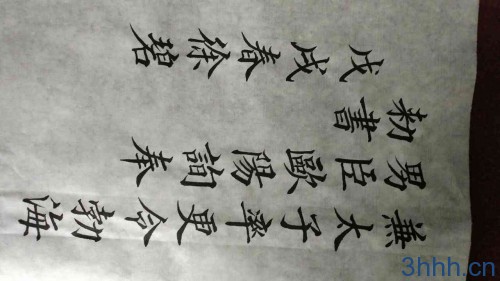 兼太子率更令勃海
男臣歐陽詢奉
勅書
戊戌春徐碧
3hhh.cn